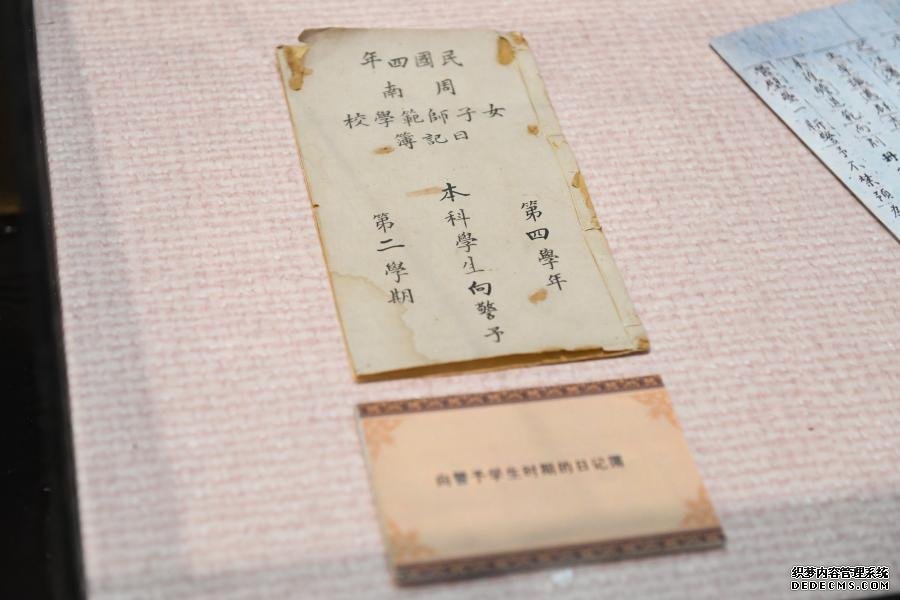 民國四年
周南
女子師範學校
日記簿
第四學年
本科學生向警予
第二學期
向警予学生时期的日记簿
织梦内容管理系统
DEDECMS.COM